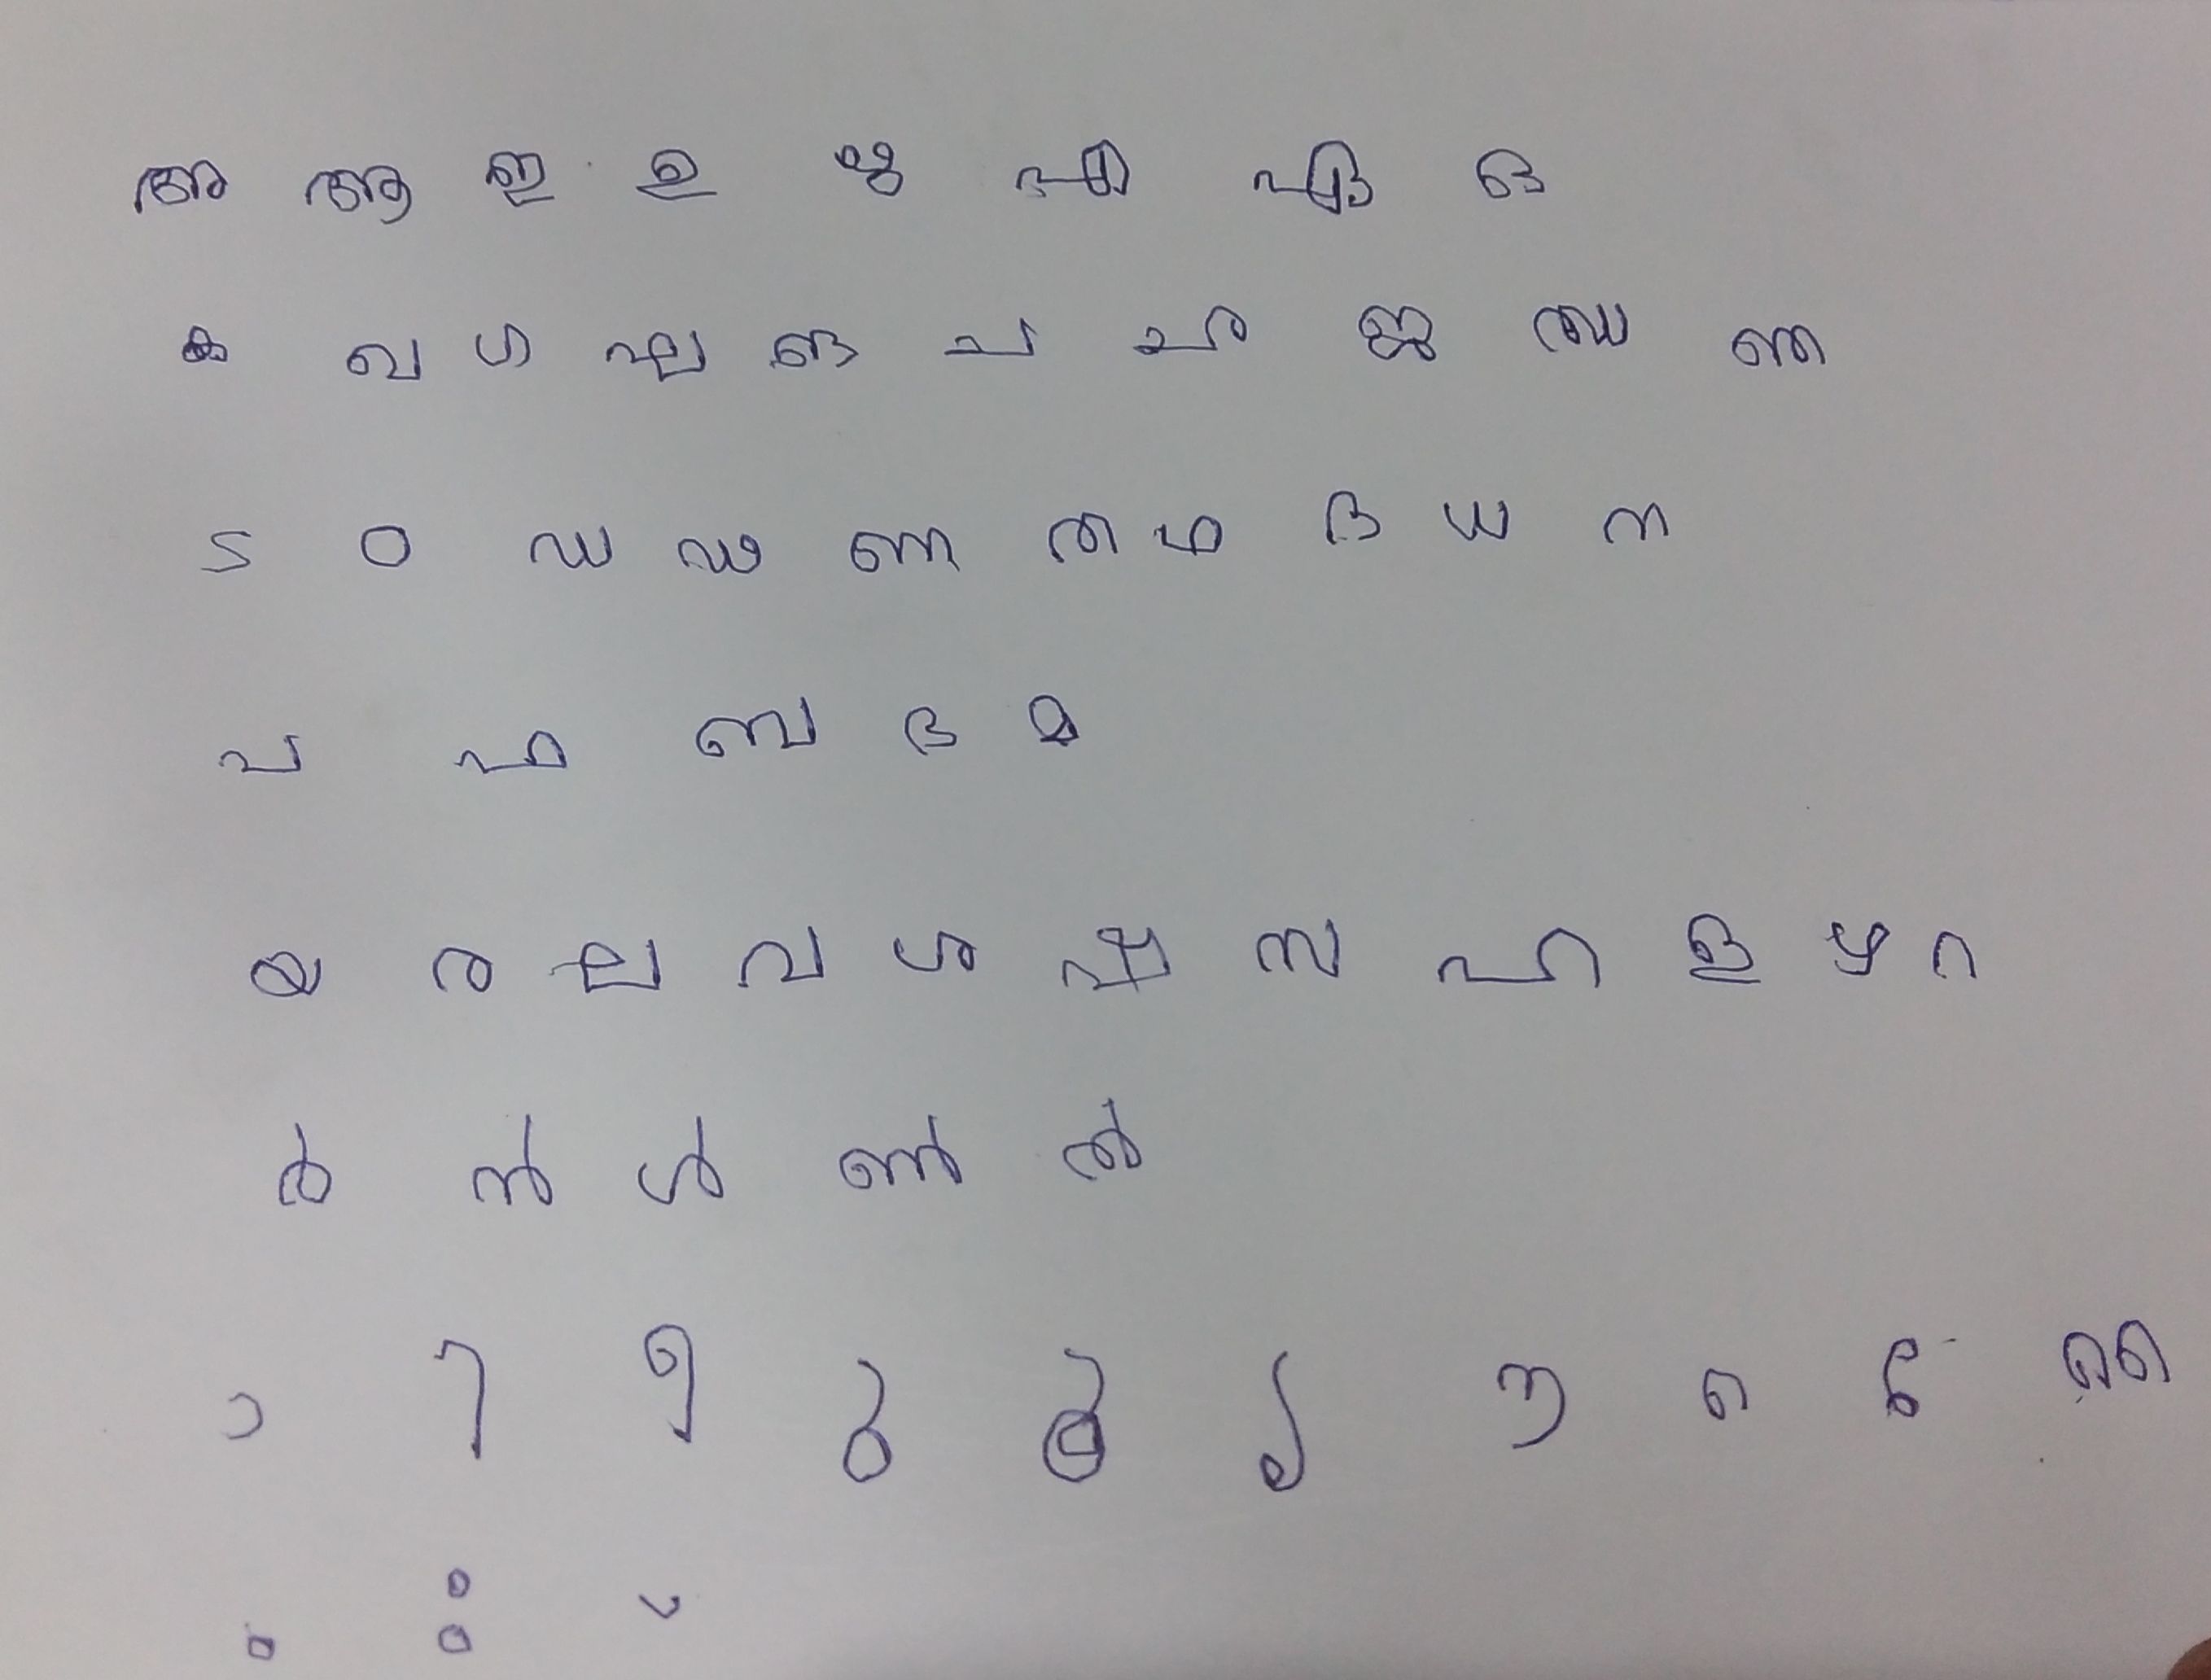 അ ആ ഇ ഉ ഋ എ ഏ ഒ
ക ഖ ഗ ഘ ങ ച ഛ ജ ഝ ഞ
ട ഠ ഡ ഢ ണ ത ഥ ദ ധ ന
പ ഫ ബ ഭ മ
യ ര ല വ ശ ഷ സ ഹ ള ഴ റ
ർ ൻ ൾ ൺ ൽ
ാ ി ീ ു ൂ ൃ ൗ െ േ ൈ
ം ഃ ്